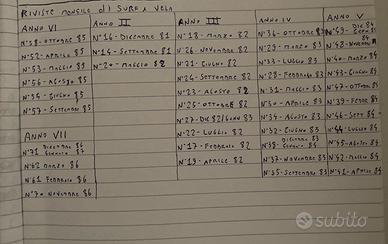 RIVISTE MENSILE DI SURF E VELA
ANNO VI
N°58-OTTOBRE 85
N°52-APRILE 85
N°53-MAGGIO 85
N°56-AGOSTO 85
N°54-GIUGNO 85
N°57-SETTEMBRE 85
ANNO VII
N°71 DICEMBRE 86 GENNAIO 87
N°62 MARZO 86
N°61 FEBBRAIO 86
N°70 NOVEMBRE 86
ANNO II
N°16-DICEMBRE 81
N°14-SETTEMBRE 81
N°20-MAGGIO 82
ANNO III
N°18-MARZO 82
N°26-NOVEMBRE 82
N°21-GIUGNO 82
N°24-SETTEMBRE 82
N°23-AGOSTO 82
N°25-OTTOBRE 82
N°27-DIC 82/GENN 83
N°22-LUGLIO 82
N°17-FEBBRAIO 82
N°19-APRILE 82
ANNO IV
N°36-OTTOBRE 83
N°29-MARZO 83
N°33-LUGLIO 83
N°28-FEBBRAIO 83
N°31-MAGGIO 83
N°30-APRILE 83
N°34-AGOSTO 83
N°32-GIUGNO 83
N°38-DICEMBRE 83 GENNAIO 84
N°37-NOVEMBRE 83
N°35-SETTEMBRE 83
ANNO V
N°49-DIC 84 GENN 85
N°48-NOVEMBRE 84
N°40-MARZO 84
N°43-GIUGNO 84
N°47-OTTOBRE 84
N°39-FEBB 84
N°46-SETT 84
N°44-LUGLIO 84
N°45-AGOSTO 84
N°42-MAGGIO 84
N°41-APRILE 84
subito